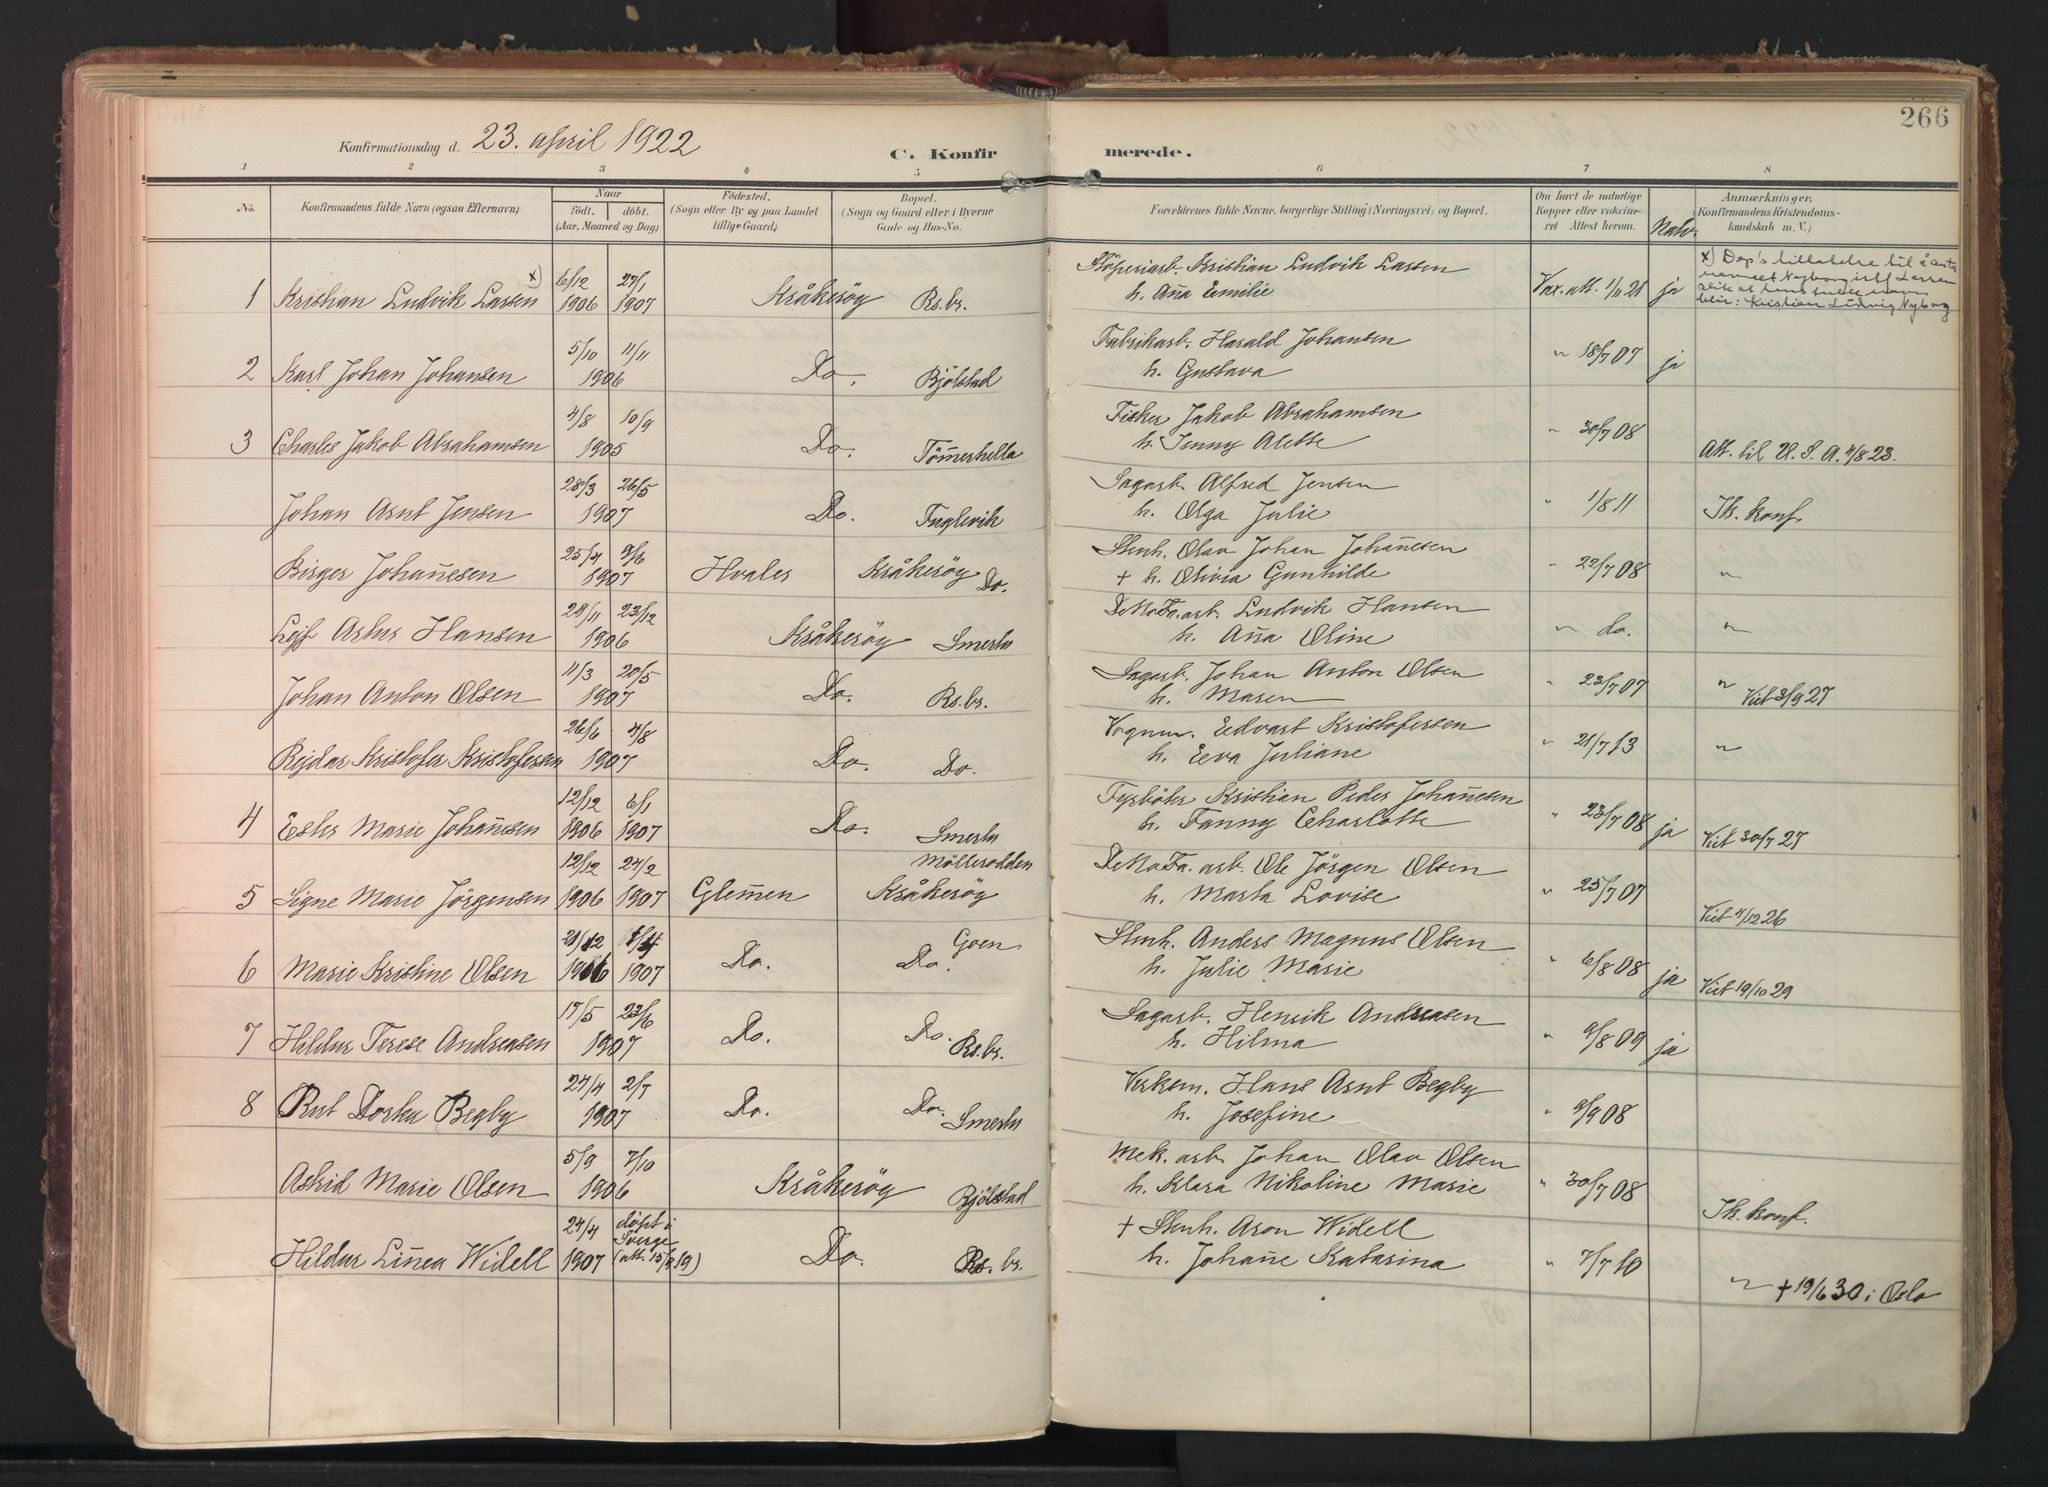 266
Konfirmationsdag d. 23. april 1922
C. Konfir merede.
1 2 3 4 5 6 7 8
No. Konfirmandens fulde Navn (ogsaa Efternavn). Naar födt. döbt. (Aar, Maaned og Dag) Födested. (Sogn eller By og paa Landet tillige Gaard.) Bopæl. (Sogn og Gaard eller i Byerne Gade og Hus-No. Forældrenes fulde Navne, borgerlige Stilling (Næringsvei) og Bopæl. Om havt de naturlige Kopper eller vakcineret Attest herom. Natv. Anmærkninger. Konfirmandens Kristendomskundskab m. V.)
1 Kristian Ludvik Larsen x) 6/12 1906 27/1 1907 Kråkeröy Rs.br. Stöperiarb. Kristian Ludvik Larsen
h. Aña Emilie Vax. att. 1/11 21 ja
x) Dep's tilladelse til å anta
navnet Nyborg istf Larsen
slik at hans fulde navn
blir: Kristian Ludvig Nyborg
2 Karl Johan Johansen 5/10 11/11 1906 Do. Bjölstad Fabrikarb. Harald Johansen
h. Gustava " 18/7 07 ja
3 Charles Jakob Abrahamsen 4/8 10/9 1905 Do. Tömerhella Fisker Jakob Abrahamsen
h. Jenny Alette " 30/7 08 Att. til U. S. A. 4/8 23.
Johan Arnt Jensen 28/3 26/5 1907 Do. Fuglevik Sagarb. Alfred Jensen
h. Olga Julie " 1/8 11 Ik. konf.
Birger Johañesen 25/4 9/6 1907 Hvaler Kråkeröy Do. Stenh. Olav Johan Johañesen
+ h. Olivia Gunhilde " 22/7 08 "
Leif Artur Hansen 29/11 23/12 1906 Kråkeröy Smertu DeNoFa. arb. Ludvik Hansen
h. Aña Oline " do. "
Johan Anton Olsen 11/3 20/5 1907 Do. Rs.br. Sagarb. Johan Anton Olsen
h. Maren " 23/7 07 " Viet 3/9 27
Reidar Kristofer Kristofersen 26/6 4/8 1907 Do. Do. Vognm. Edvart Kristofersen
h. Eva Juliane " 21/7 13 "
4 Ester Marie Johañesen 12/12 1906 6/1 1907 Do. Smertu Fyrböter Kristian Peder Johañesen
h. Fanny Charlotte " 23/7 08 ja Viet 30/7 27
5 Signe Marie Jörgensen 12/12 1906 24/2 1907 Glemen Kråkeröy Möllerodden DeNoFa. arb. Ole Jörgen Olsen
h. Marta Lovise " 25/7 07 Viet 4/12 26
6 Marie Kristine Olsen 21/12 1906 1/4 1907 Do. Do. Goen Stenh. Anders Magnus Olsen
h. Julie Marie " 6/8 08 ja Viet 19/10 29
7 Hildur Terese Andreasen 17/5 23/6 1907 Do. Do. Rs.br. Sagarb. Henrik Andreasen
h. Hilma " 9/8 09 ja
8 Rut Dorthea Begby 24/4 2/7 1907 Do. Do. Smertu Verksm. Hans Arnt Begby
h. Josefine " 9/9 08
Astrid Marie Olsen 5/9 7/10 1906 Kråkeröy Bjölstad Mek. arb. Johan Olav Olsen
h. Klara Nikoline Marie " 30/7 08 Ik. konf.
Hildur Liñea Widell 24/4 1907 döpt i Sverge (att. 15/2 19) Do. Rs. br. + Stenh. Aron Widell
h. Johañe Katarina " 7/7 10 " + 19/6 30 i Oslo